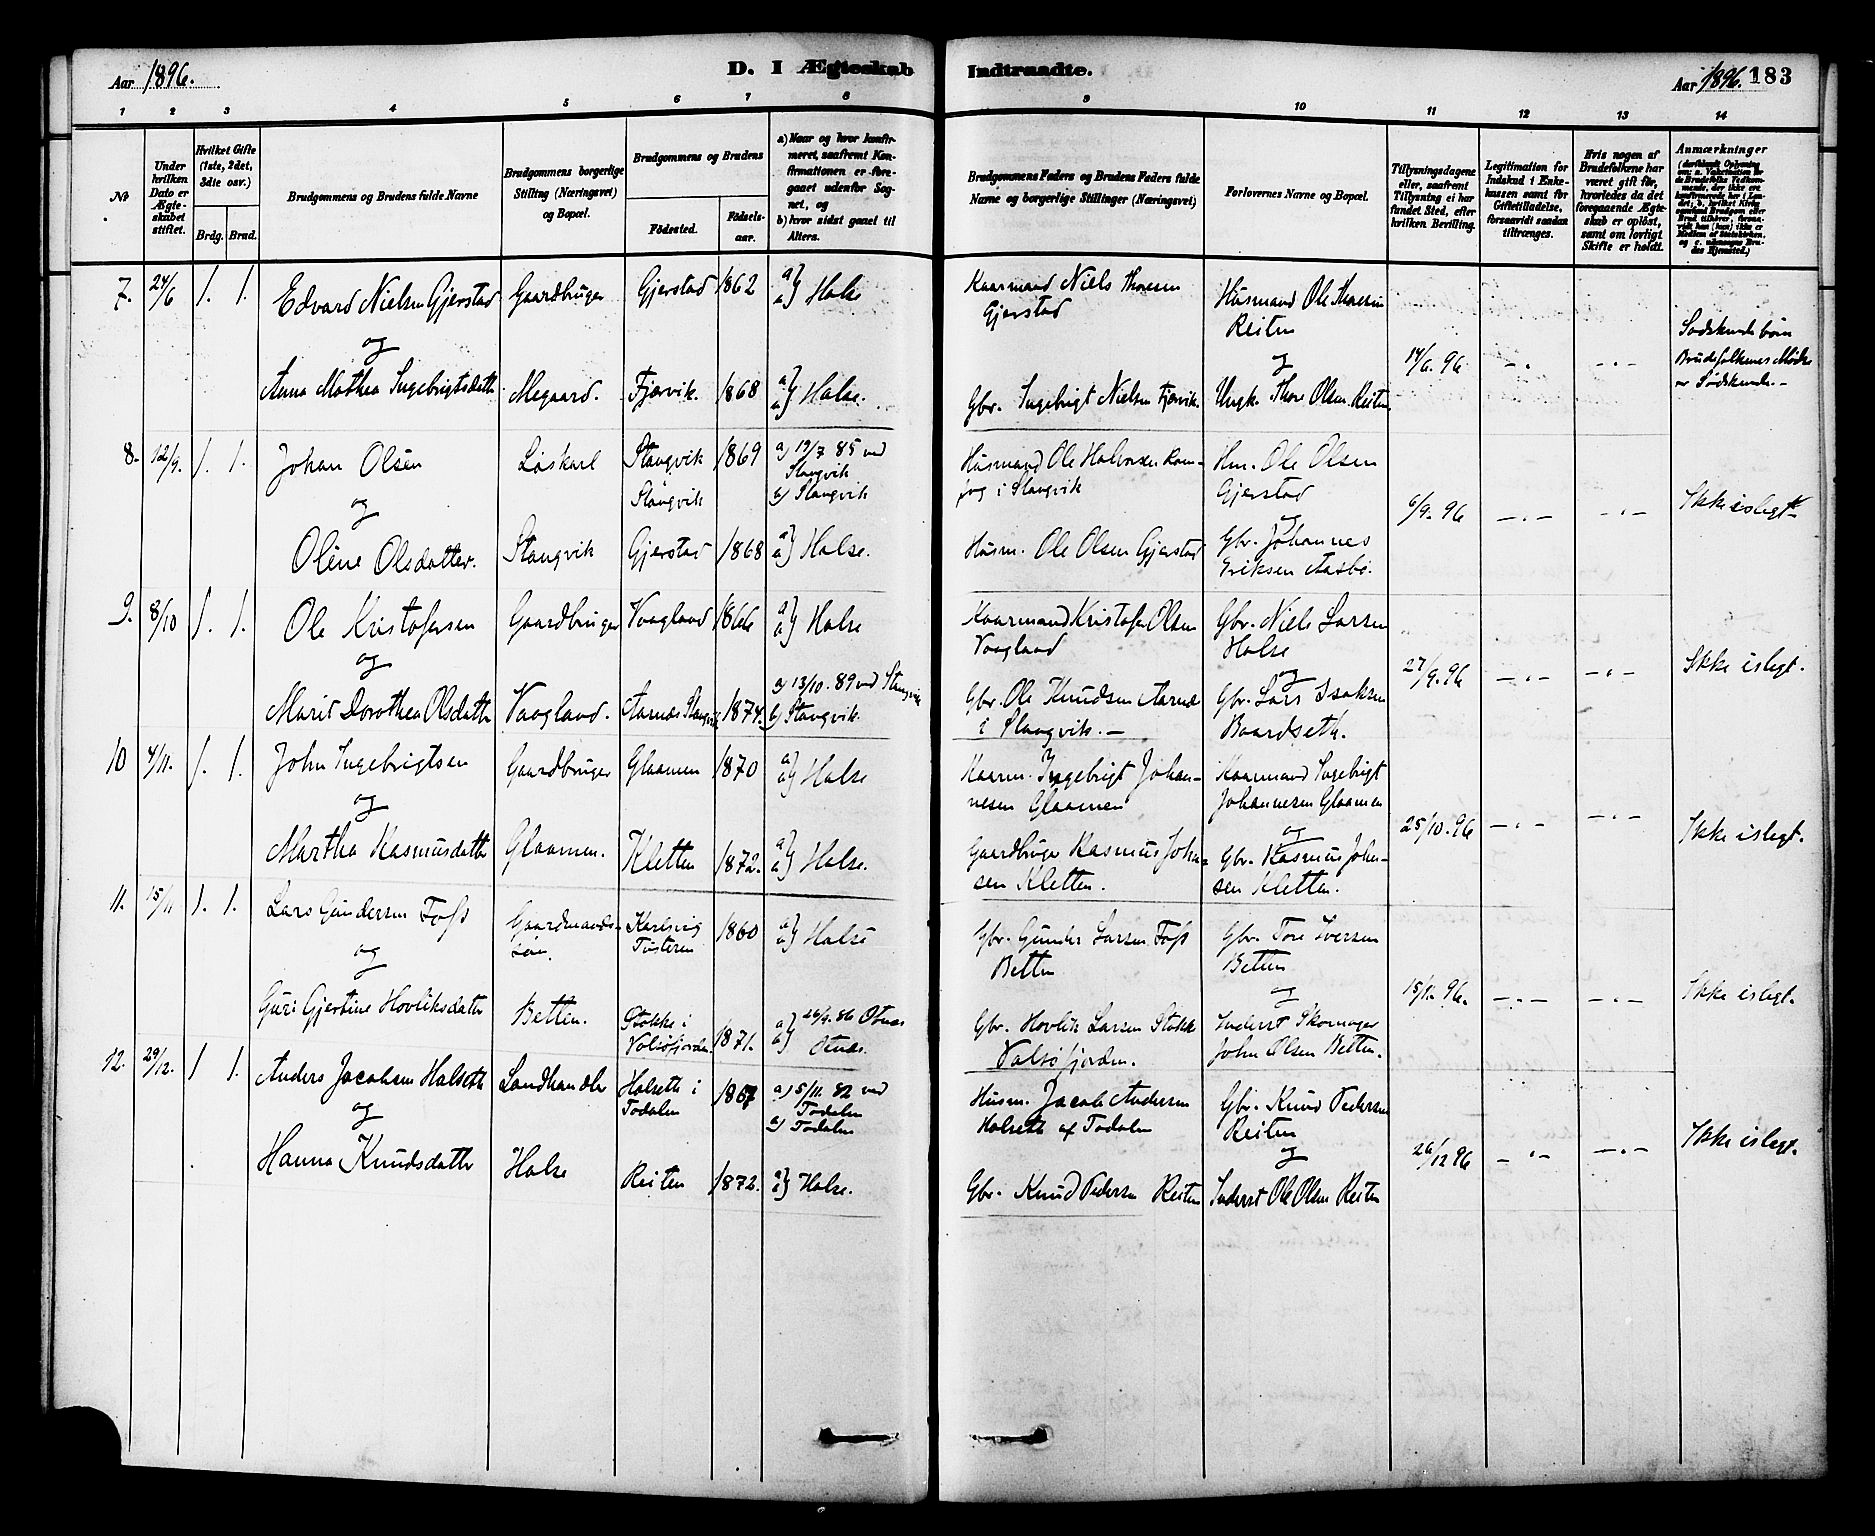 Aar 1896.
D. I Ægteskab Indtraadte.
Aar 1896. 183
1 2 3 4 5 6 7 8 9 10 11 12 13 14
No.
Under hvilken Dato er Ægteskabet stiftet.
Hvilket Gifte (1ste, 2det, 3die osv.)
Brdg. Brud.
Brudgommens og Brudens fulde Navne
Brudgommens borgerlige Stilling (Næringsvei) og Bopæl.
Brudgommens og Brudens
Fødested.
Fødselsaar.
a) Naar og hvor konfirmeret, saafremt Konfirmationen er foregaaet udenfor Sognet, og
b) hvor sidst gaaet til Alters.
Brudgommens Faders og Brudens Faders fulde Navne og borgerlige Stillinger (Næringsvei)
Forlovernes Navne og Bopæl.
Tillysningsdagene eller, saafremt Tillysning ei har fundet Sted, efter hvilken Bevilling.
Legitimation for Indskud i Enkekassen samt for Giftetilladelse, forsaavidt saadan tiltrænges.
Hvis nogen af Brudefolkene har været gift før, hvorledes da det foregaaende Ægteskab er opløst, samt om lovligt Skifte er holdt.
Anmærkninger
7. 24/6 1. 1.
Edvard Nielsen Gjerstad
og
Anna Mathea Ingebrigtsdatter
Gaardbruger
Megaard.
Gjerstad 1862 a) b) Halse
Fjærvik. 1868 a) b) Halse.
Kaarmand Niels Thoresen
Gjerstad
Gbr. Ingebrigt Nielsen Fjærvik.
Husmand Ole Thoresen
Reiten
og
Ungk. Thore Olsen Reiten
14/6. 96
Sødskendebørn
Brudefolkenes Mødre
er Sødskende.-
8. 12/9. 1. 1.
Johan Olsen
og
Oline Olsdatter.
Løskarl
Stangvik
Stangvik
Stangvik
1869
a) 19/7 85 ved
Stangvik
b) Stangvik
Gjerstad 1868 a) b) Halse.
Husmand Ole Halvorsen
i Stangvik
Husm. Ole Olsen Gjerstad
Hm. Ole Olsen
Gjerstad
og
Gbr. Johannes
Eriksen Aasbø.
6/9. 96
Ikke islegt
9. 8/10 1. 1.
Ole Kristofersen
og
Marit Dorothea Olsdatter
Gaardbruger
Vaagland.
Vaagland 1866 a) b) Halse
Aarnæs Stangvik 1874.
a) 13/10. 89 ved Stangvik
b) Stangvik.
Kaarmand Kristofer Olsen
Vaagland
Gbr. Ole Knudsen Aarnæs
i Stangvik.-
Gbr. Niels Larsen
Halse
og
Gbr. Lars Isaksen
Baardseth.
27/9. 96
Ikke islegt.
10 4/11. 1. 1.
John Ingebrigtsen
og
Martha Rasmusdatter
Gaardbruger
Glaamen.
Glaamen 1870 a) b) Halse
Kletten 1872. a) b) Halse.
Kaarm. Ingebrigt Johan-
nesen Glaamen
Gaardbruger Rasmus Johan-
sen Kletten.
Kaarmand Ingebrigt
Johannesen Glaamen
og
Gbr. Rasmus Johan-
sen Kletten.
25/10. 96
Ikke islegt.
11. 15/11 1. 1.
Lars Gundersen Foss
og
Guri Gjertine Hovliksdatter
Gaardmands-
søn.
Betten.
Karlsvig
Tusteren
1860 a) b) Halse
Stokke i
Valsøfjorden. 1871.
a) 26/9. 86 Otnæs
b) Otnæs.
Gbr. Gunder Larsen Foss
Betten
Gbr. Hovlik Larsen Stokke
Valsøfjorden.
Gbr. Tore Iversen
Betten
og
Inderst Skomager
John Olsen Betten.
15/11. 96.
Ikke islegt.
12. 29/12. 1 1.
Anders Jacobsen Halseth
og
Hanna Knudsdatter
Landhandler
Halse
Halseth i
Todalen
1867
a) 5/11. 82 ved
Todalen
b) Todalen
Reiten 1872. a) b) Halse.
Husm. Jacob Andersen
Halseth af Todalen
Gbr. Knud Pedersen Reiten
Gbr. Knud Pedersen
Reiten
og
Inderst Ole Olsen Reiten
26/12 96
Ikke islegt.